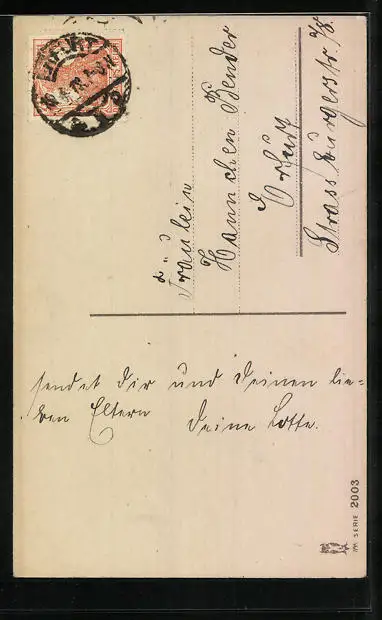 ERFURT
Fräulein
Hannchen Bender
Erfurt
Strassburgerstr.
sendet Dir und Deinen lie=
ben Eltern
Deine Lotte.
SERIE 2003